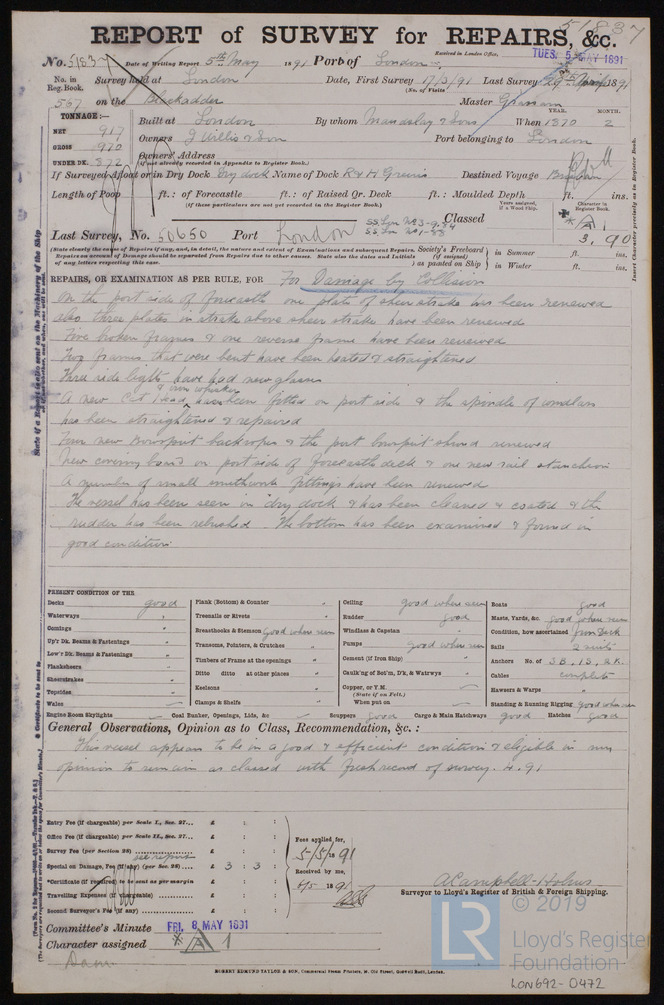 51837
REPORT of SURVEY for REPAIRS, &c.
No. 51837 Date of Writing Report 5th May 1891 Port of London
Received in London Office, TUES. 5 MAY 1891
No. in Reg. Book. Survey held at London Date, First Survey 17/3/91 Last Survey 29th April 1891
(No. of Visits)
567 on the Blackadder Master
TONNAGE:— YEAR. MONTH.
NET 917 Built at London By whom Maudslay & Sons When 1870 2
GROSS 970 Owners J Willis & Son Port belonging to London
UNDER DK. 872 Owners' Address
(if not already recorded in Appendix to Register Book.)
If Surveyed Afloat or in Dry Dock Dry dock Name of Dock R & H Greens Destined Voyage
Length of Poop ft.: of Forecastle ft.: of Raised Qr. Deck ft.: Moulded Depth ft. ins.
(If these particulars are not yet recorded in the Register Book.)
Years assigned, if a Wood Ship.
Character in Register Book.
Last Survey, No. 50650 Port London Classed A1
3.90
(State clearly the cause of Repairs if any, and, in detail, the nature and extent of Examinations and subsequent Repairs.
Repairs on account of Damage should be separated from Repairs due to other causes. State also the dates and initials
of any letters respecting this case.
Society's Freeboard (if assigned) as painted on Ship
in Summer ft. ins.
in Winter ft. ins.
REPAIRS, OR EXAMINATION AS PER RULE, FOR For Damage by Collision
On the port side of forecastle one plate of sheerstrake has been renewed
also three plates in strake above sheer strake have been renewed
Five broken frames & one reverse frame have been renewed
Two frames that were bent have been heated & straightened
Three side lights have had new glasses
A new Cat head & iron whisker have been fitted on port side & the spindle of windlass
has been straightened & repaired
Four new Bowsprit back ropes & the port bowsprit shroud renewed
New covering board on port side of forecastle deck & one new rail stanchion
A number of small smithwork fittings have been renewed
The vessel has been seen in dry dock & has been cleaned & coated & the
rudder has been rebushed. The bottom has been examined & found in
good condition
PRESENT CONDITION OF THE
Decks good
Waterways "
Comings "
Up'r Dk. Beams & Fastenings "
Low'r Dk. Beams & Fastenings "
Planksheers "
Sheerstrakes "
Topsides "
Wales
Plank (Bottom) & Counter "
Treenails or Rivets "
Breasthooks & Stemson good where seen
Transoms, Pointers, & Crutches "
Timbers of Frame at the openings "
Ditto ditto at other places "
Keelsons "
Clamps & Shelfs
Ceiling good where seen
Rudder good
Windlass & Capstan "
Pumps good where seen
Cement (if Iron Ship) "
Caulk'ng of Bot'm, D'k, & Watrwys "
Copper, or Y.M.
(State if on Felt.)
When put on
Boats good
Masts, Yards, &c. good where seen
Condition, how ascertained from Deck
Sails 2 suits
Anchors No. of 3B. 1S. 2K.
Cables complete
Hawsers & Warps "
Standing & Running Rigging good where seen
Engine Room Skylights Coal Bunker, Openings, Lids, &c Scuppers good Cargo & Main Hatchways good Hatches good
General Observations, Opinion as to Class, Recommendation, &c. :
This vessel appears to be in a good & efficient condition & eligible in my
opinion to remain as classed with fresh record of survey. 4.91
Entry Fee (if chargeable) per Scale I., Sec. 27... £ : :
Office Fee (if chargeable) per Scale II., Sec. 27... £ : :
Survey Fee (per Section 28) £ : :
see repairs
Special on Damage, Fee (if any) (per Sec. 28)... £ 3 : 3 :
*Certificate (if required) to be sent as per margin
Travelling Expenses (if chargeable) £ : :
Second Surveyor's Fee (if any) £ : :
Fees applied for,
5/5/1891
Received by me,
1891
A Campbell-Holms
Surveyor to Lloyd's Register of British & Foreign Shipping.
Committee's Minute FRI. 8 MAY 1891
Character assigned A 1
ROBERT EDMUND TAYLOR & SON, Commercial Steam Printers, 19, Old Street, Goswell Road, London.
LR
© 2019
Lloyd's Register
Foundation
LON692-0472